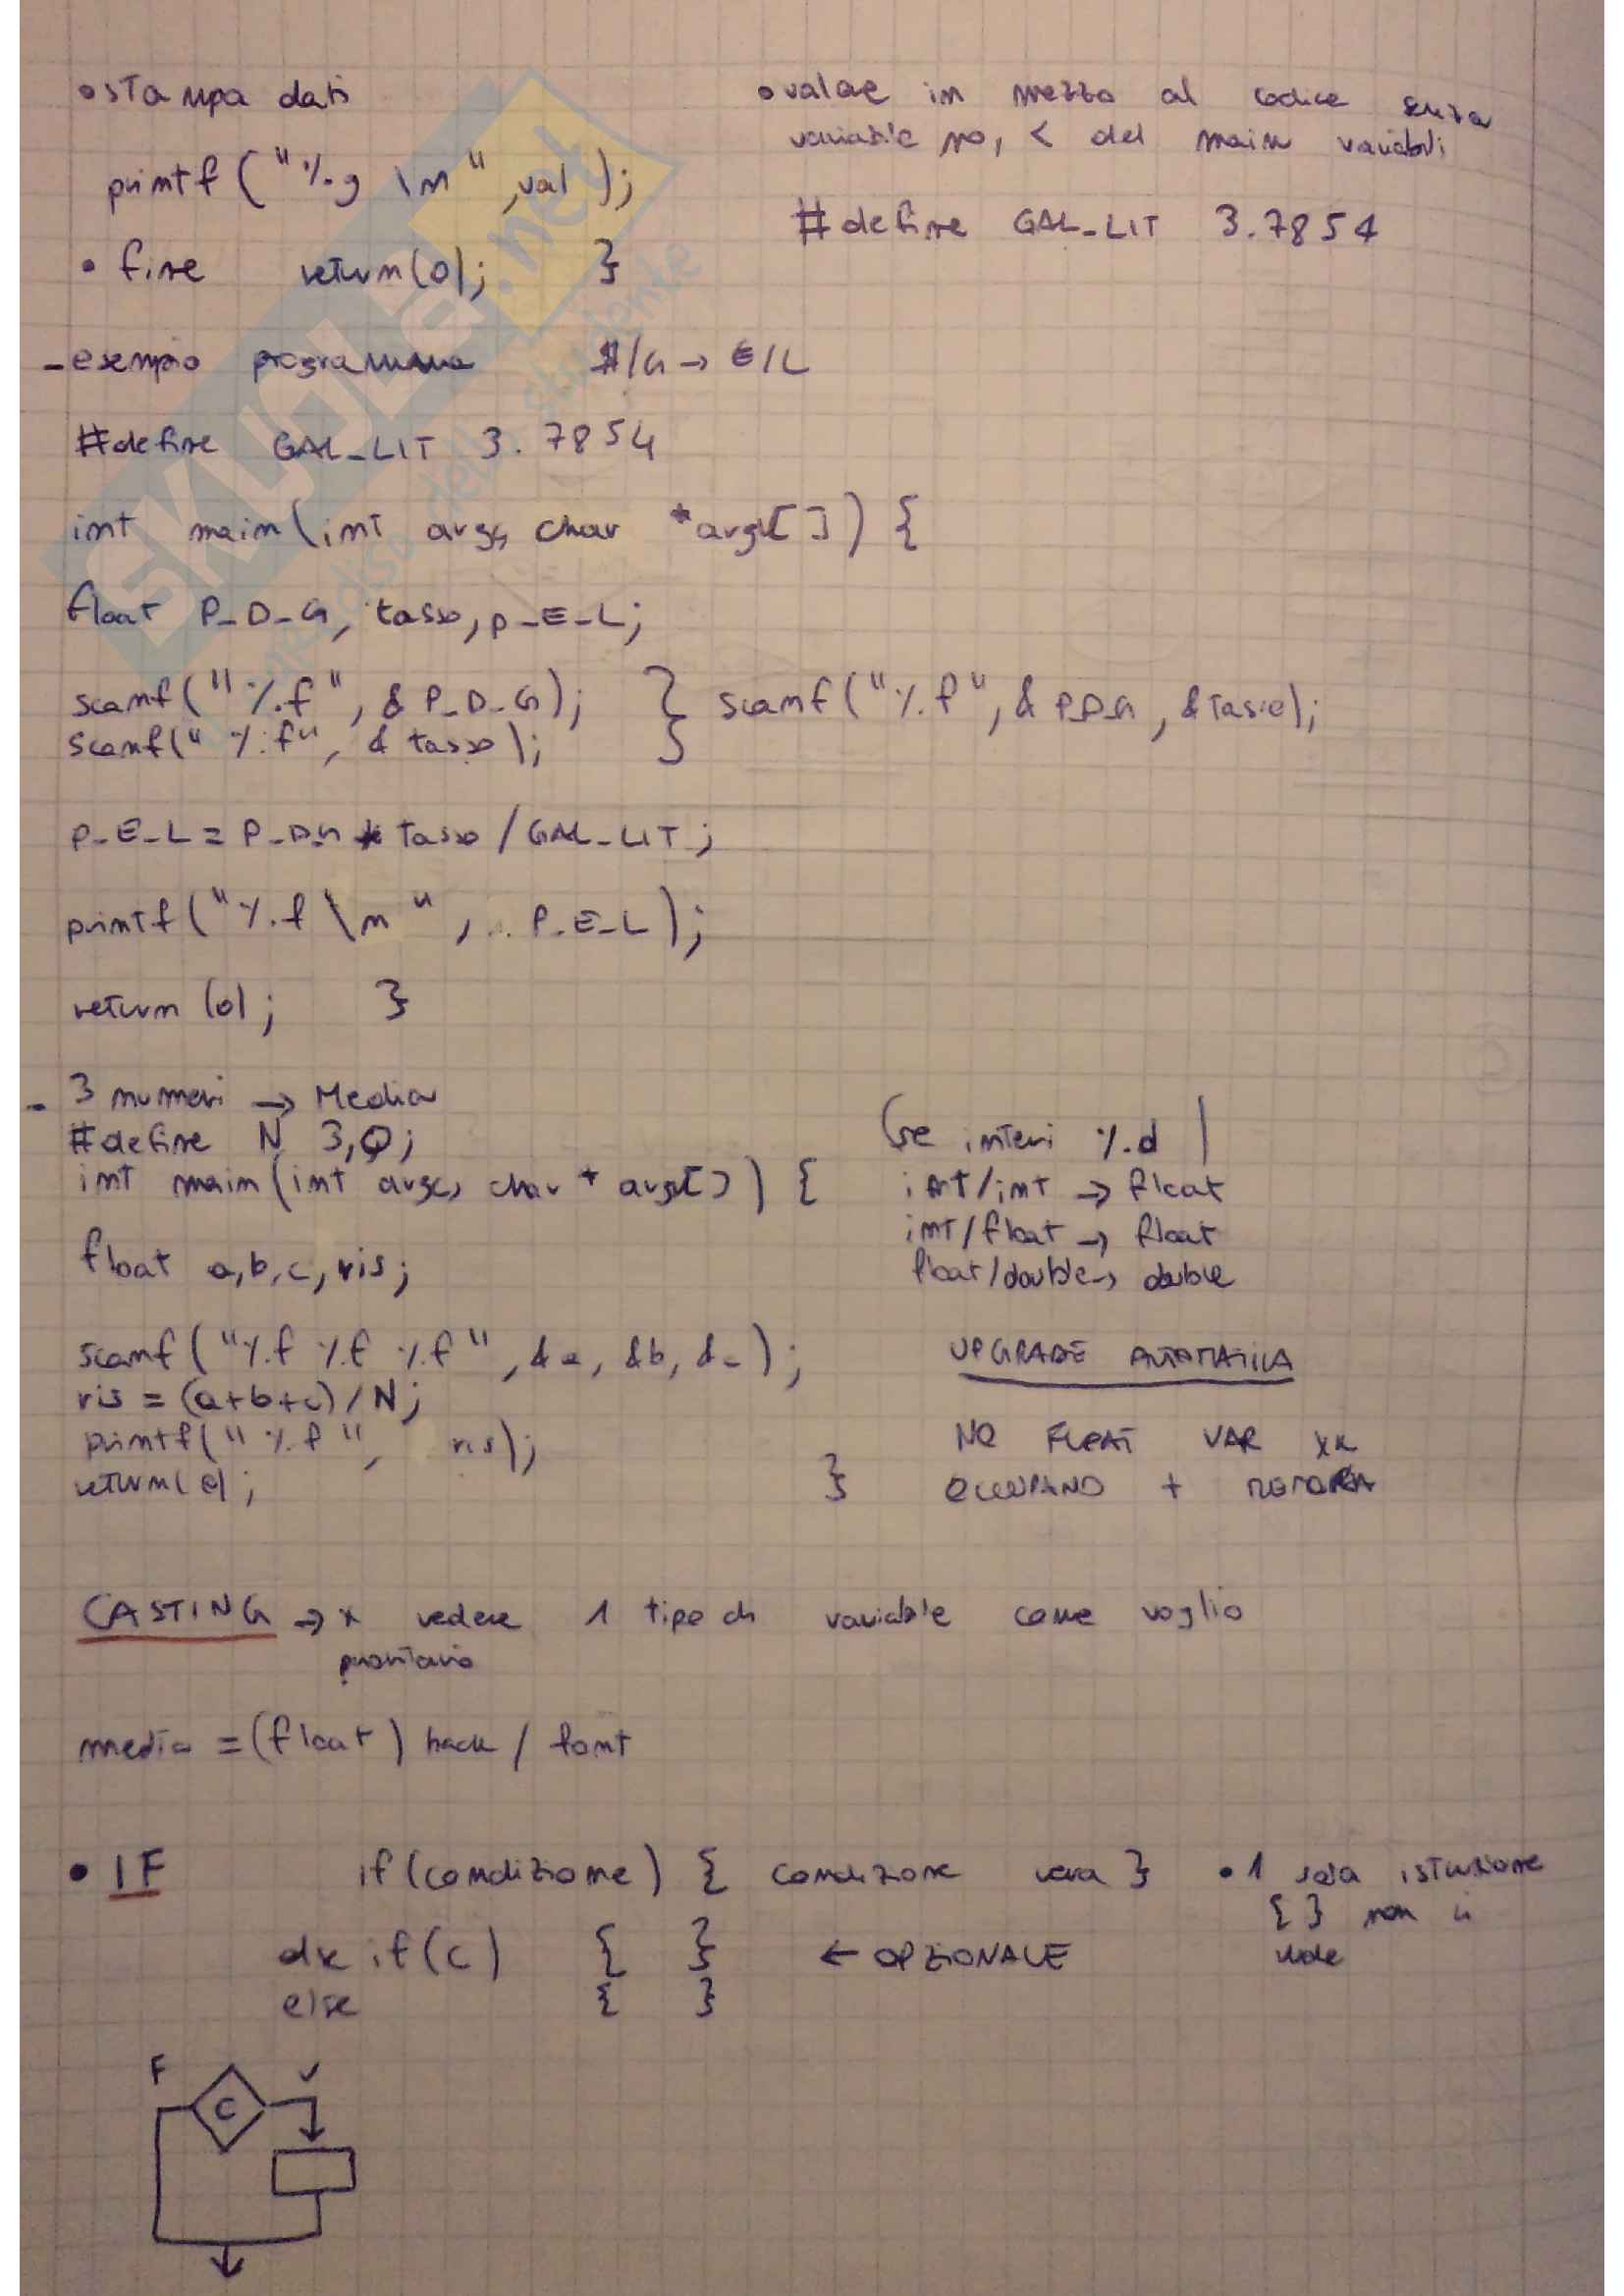 • stampa dati
printf("%g \n", val);
• fine return(0); }
• valore in mezzo al codice senza
variabile no, < del main variabili
#define GAL_LIT 3.7854
- esempio programma $/G → €/L
#define GAL_LIT 3.7854
int main(int argc, char *argv[]) {
float P_D_G, tasso, p_E_L;
scanf("%f", &P_D_G);
scanf("%f", &tasso);
} scanf("%f", &P_D_G, &tasso);
P_E_L = P_D_G * tasso / GAL_LIT;
printf("%f \n", P_E_L);
return(0); }
- 3 numeri → Media
#define N 3,0;
int main(int argc, char * argv[]) {
float a,b,c, ris;
scanf("%f %f %f", &a, &b, &c);
ris = (a+b+c)/N;
printf("%f", ris);
return(0); }
(se interi %d |
int/int → float
int/float → float
float/double → double
UPGRADE AUTOMATICA
NO FLOAT VAR XK
OCCUPANO + MEMORIA
CASTING → x vedere 1 tipo di variabile come voglio
media = (float) /
• IF if(condizione) { condizione vera }
else if(c) { } ← OPZIONALE
else { }
• 1 sola istruzione
{ } non ci
vuole
F V
C
SKUOLA.net